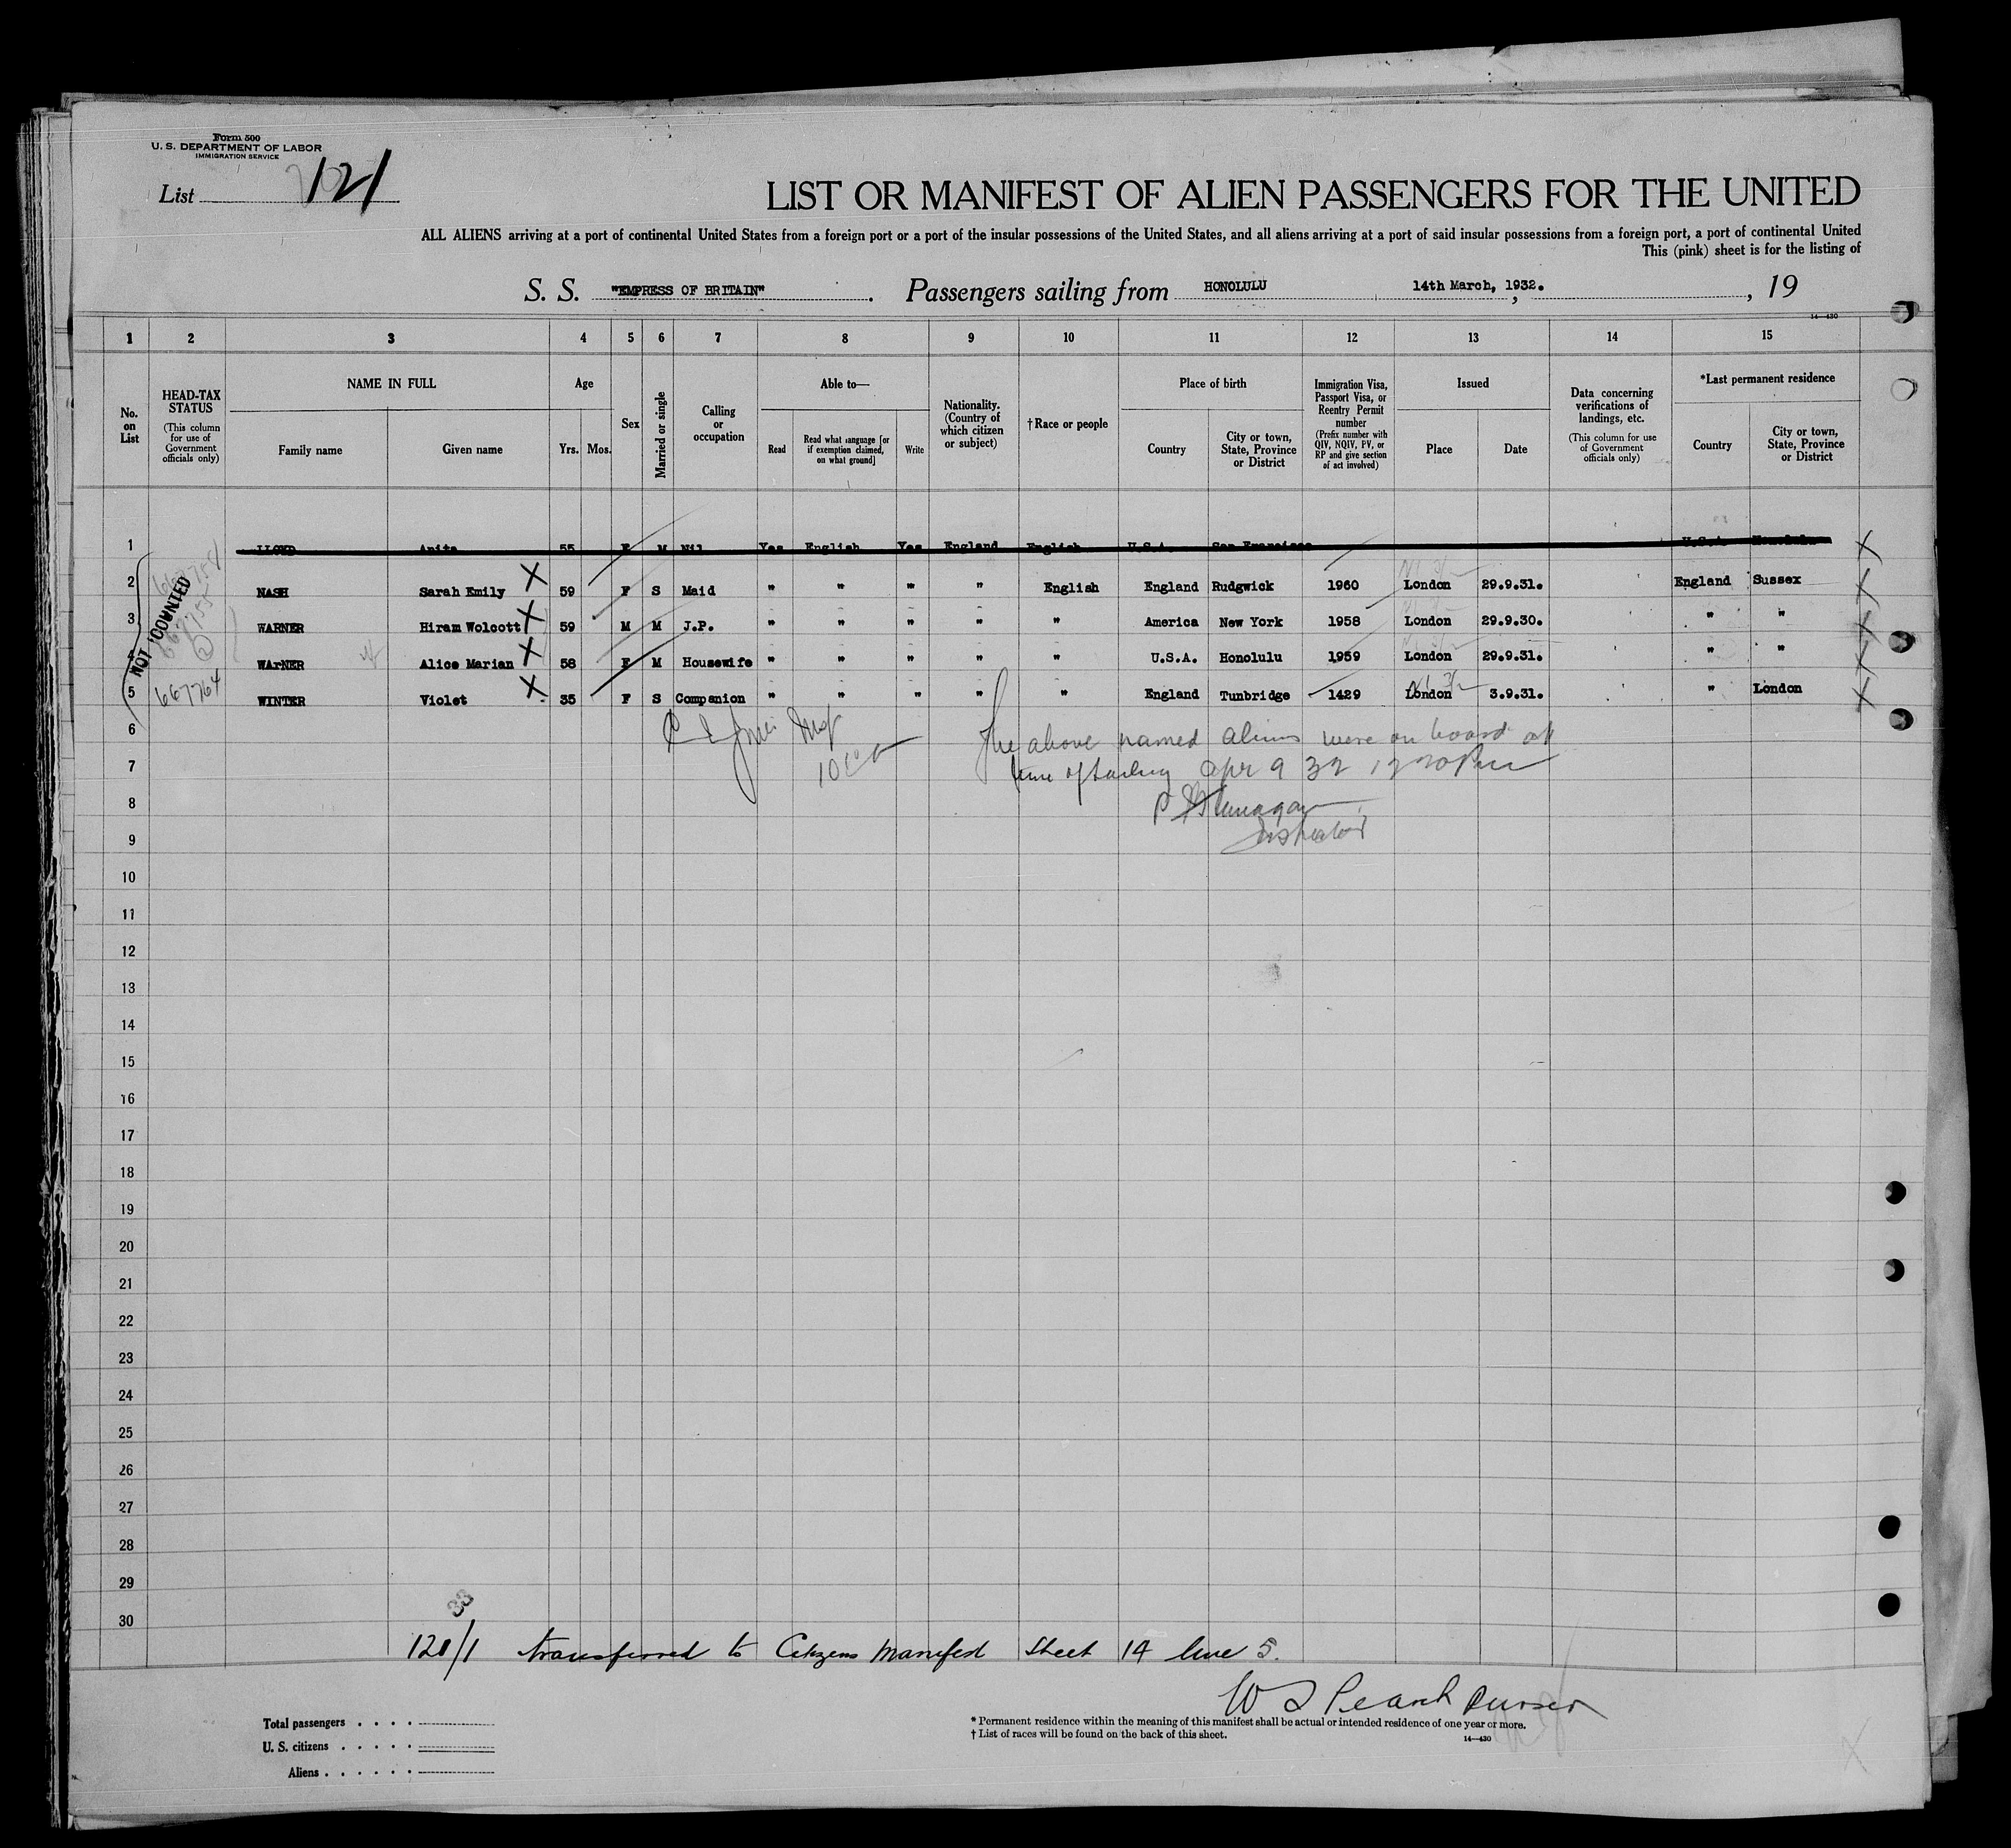 Form 500
U. S. DEPARTMENT OF LABOR
IMMIGRATION SERVICE
List 121
LIST OR MANIFEST OF ALIEN PASSENGERS FOR THE UNITED
ALL ALIENS arriving at a port of continental United States from a foreign port or a port of the insular possessions of the United States, and all aliens arriving at a port of said insular possessions from a foreign port, a port of continental United
This (pink) sheet is for the listing of
S. S. "EMPRESS OF BRITAIN". Passengers sailing from HONOLULU 14th March, 1932. , 19
14—430
1 2 3 4 5 6 7 8 9 10 11 12 13 14 15
No. on List
HEAD-TAX STATUS (This column for use of Government officials only)
NAME IN FULL
Family name Given name
Age
Yrs. Mos.
Sex
Married or single
Calling or occupation
Able to—
Read Read what language [or if exemption claimed, on what ground] Write
Nationality. (Country of which citizen or subject)
†Race or people
Place of birth
Country City or town, State, Province or District
Immigration Visa, Passport Visa, or Reentry Permit number (Prefix number with QIV, NQIV, PV, or RP and give section of act involved)
Issued
Place Date
Data concerning verifications of landings, etc. (This column for use of Government officials only)
*Last permanent residence
Country City or town, State, Province or District
1 LLOYD Anita 55 F M Nil Yes English Yes England English U.S.A. San Francisco U.S.A. Honolulu X
2 NASH Sarah Emily X 59 F S Maid " " " " English England Rudgwick 1960 London 29.9.31. England Sussex X
3 WARNER Hiram Wolcott X 59 M M J.P. " " " " " America New York 1958 London 29.9.30. " " X
4 WArNER Alice Marian X 58 F M Housewife " " " " " U.S.A. Honolulu 1959 London 29.9.31. " " X
5 667764 WINTER Violet X 35 F S Companion " " " " " England Tunbridge 1429 London 3.9.31. " London X
NOT COUNTED
6
The above named aliens were on board at
7
time of sailing Apr 9 32 12 20 Pm
8
9
Inspector
10
11
12
13
14
15
16
17
18
19
20
21
22
23
24
25
26
27
28
29
33
30
121/1 transferred to Citizens Manifest Sheet 14 line 5.
Purser
Total passengers . . . .
U. S. citizens . . . . .
Aliens . . . . . .
* Permanent residence within the meaning of this manifest shall be actual or intended residence of one year or more.
† List of races will be found on the back of this sheet.
14—430